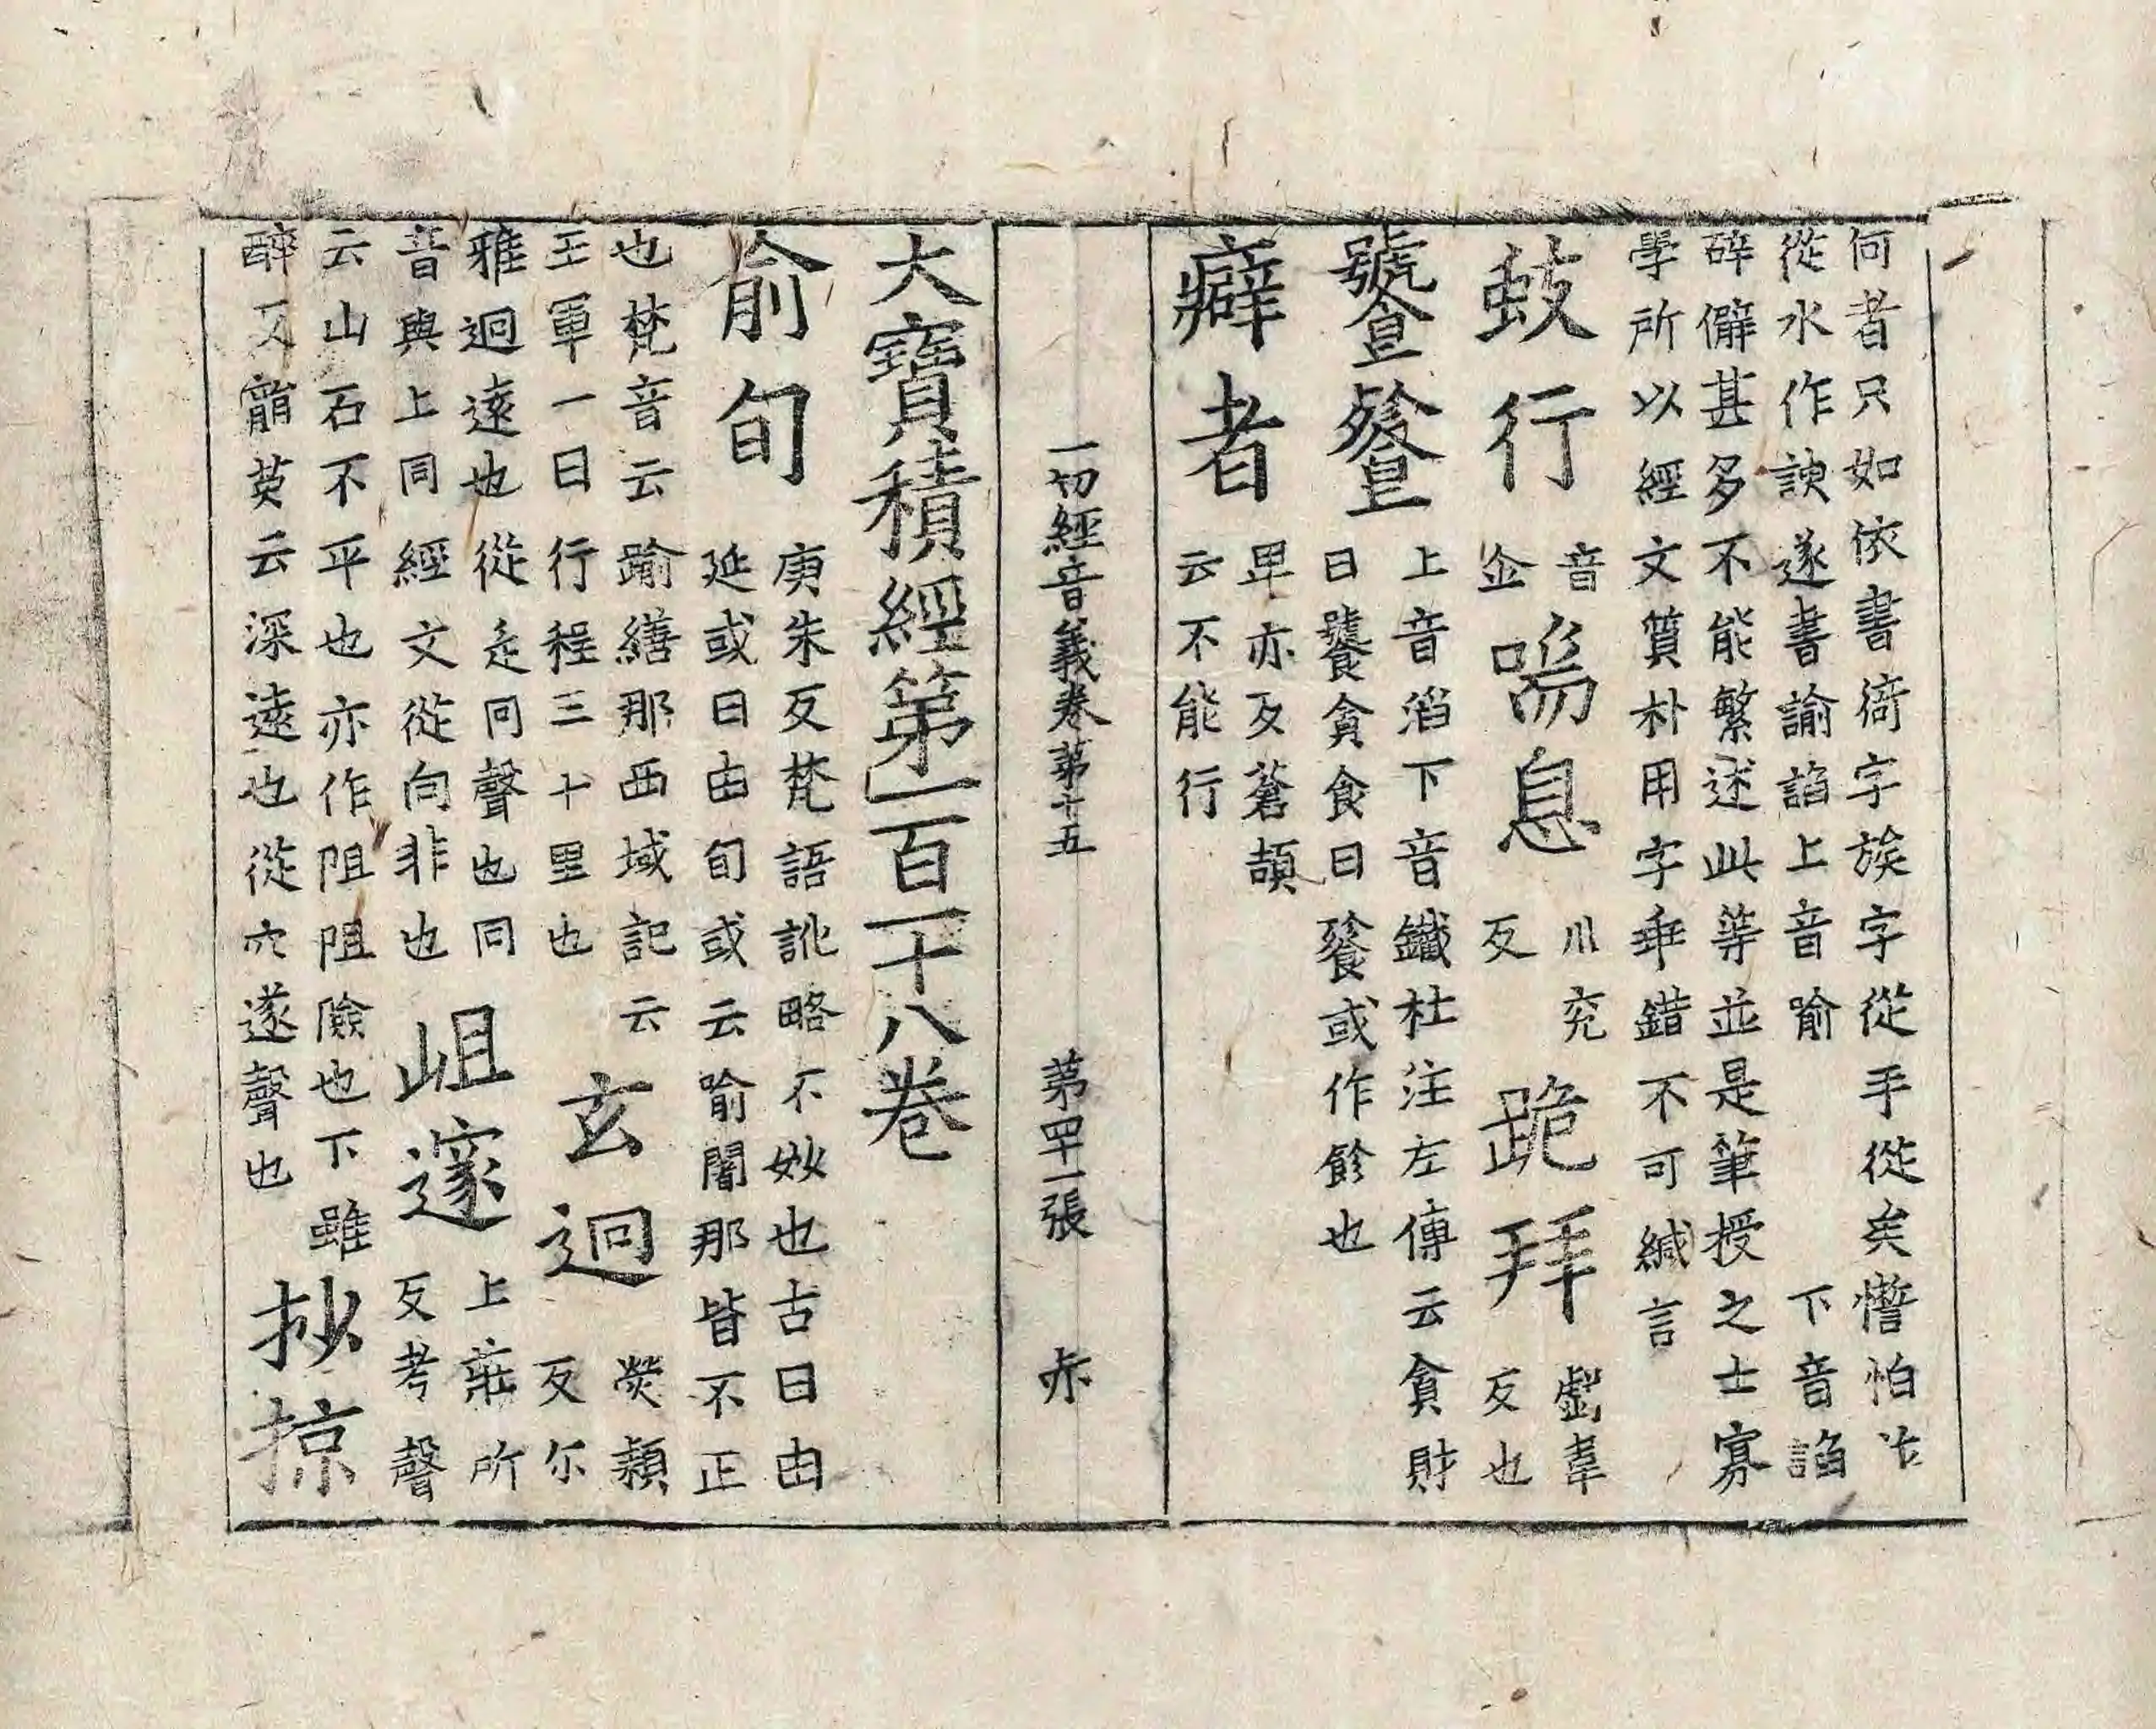 何者只如依書徛字族字從手從矣憯怕
從水作諛遂書諭諂上音喻 下音諂
碎僻甚多不能繁述此等並是筆授之士寡
學所以經文質朴用字乖錯不可緘言
蚑行 音企 喘息 川兖反 跪拜 虧葦反也
饕餮 上音滔下音鐵杜注左傳云貪財
曰饕貪食曰餮或作飻也
癖者 卑亦反蒼頡
云不能行
一切經音義卷第十五 第罒一張 赤
大寶積經第一百一十八卷
俞旬 庚朱反梵語訛略不妙也古曰由
延或曰由旬或云喻闍那皆不正
也梵音云踰繕那西域記云
王軍一日行程三十里也
玄迥 熒穎反尒
雅迥遠也從辵冋聲也冋
音與上同經文從向非也
岨邃 上莊所反考聲
云山石不平也亦作阻阻險也下雖
醉反韻英云深遠也從穴遂聲也
抄掠